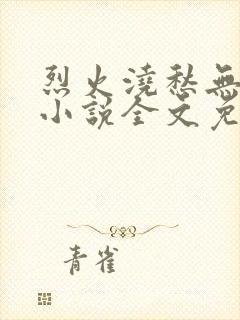 烈火澆愁無
小說全文免
青雀